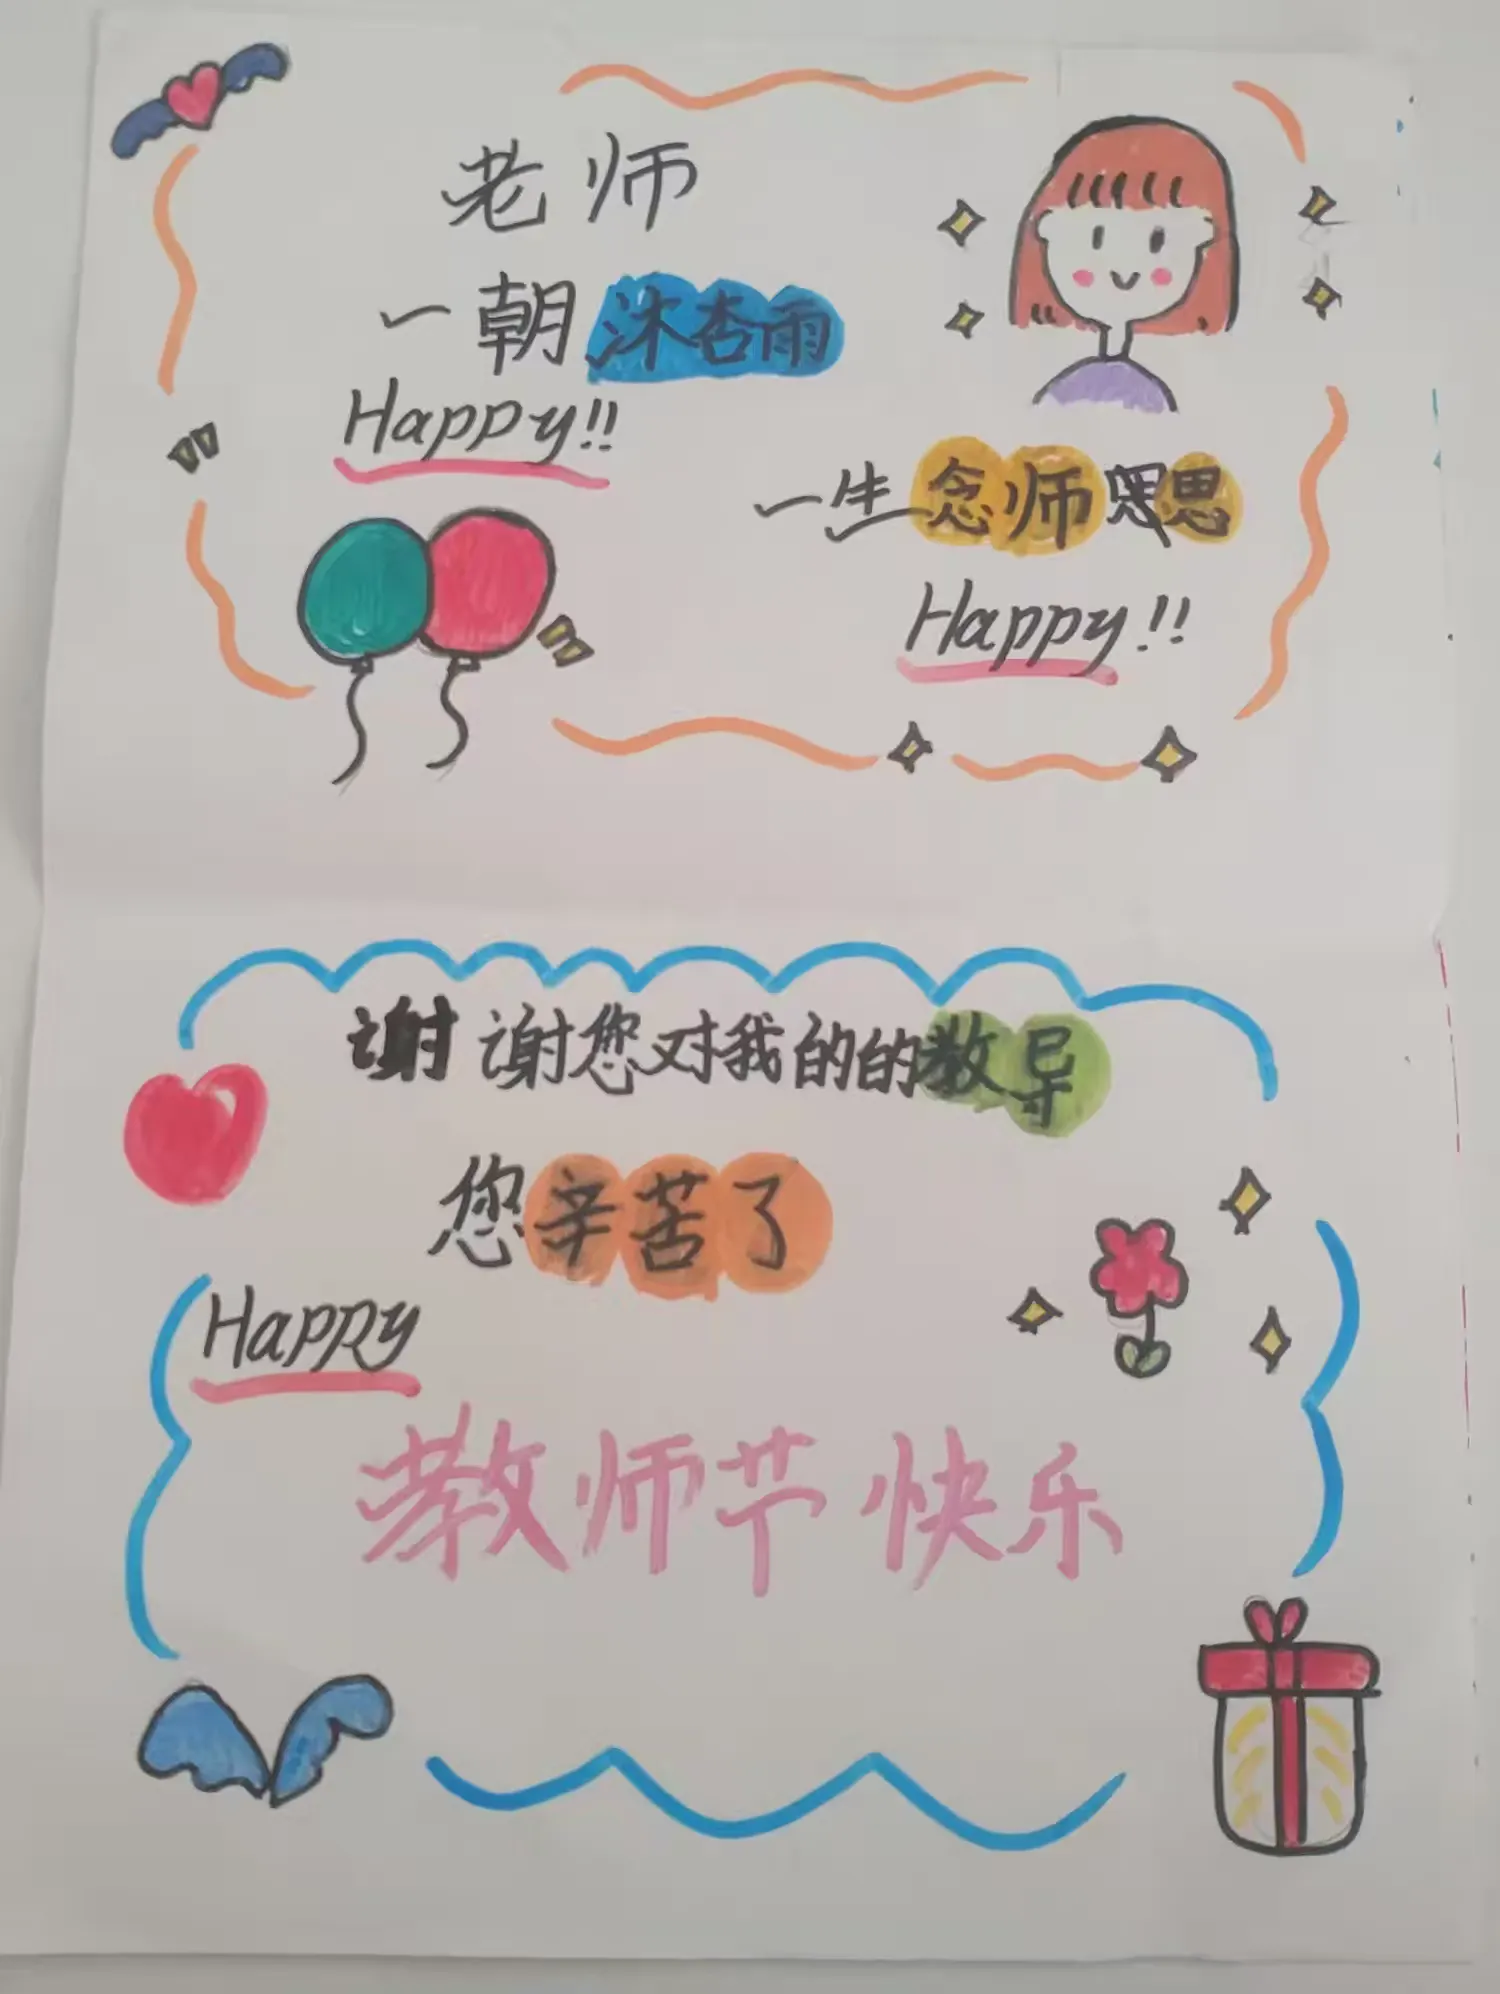 老师
一朝沐杏雨
Happy!!
一生念师恩
Happy!!
谢谢您对我的的教导
您辛苦了
Happy
教师节快乐